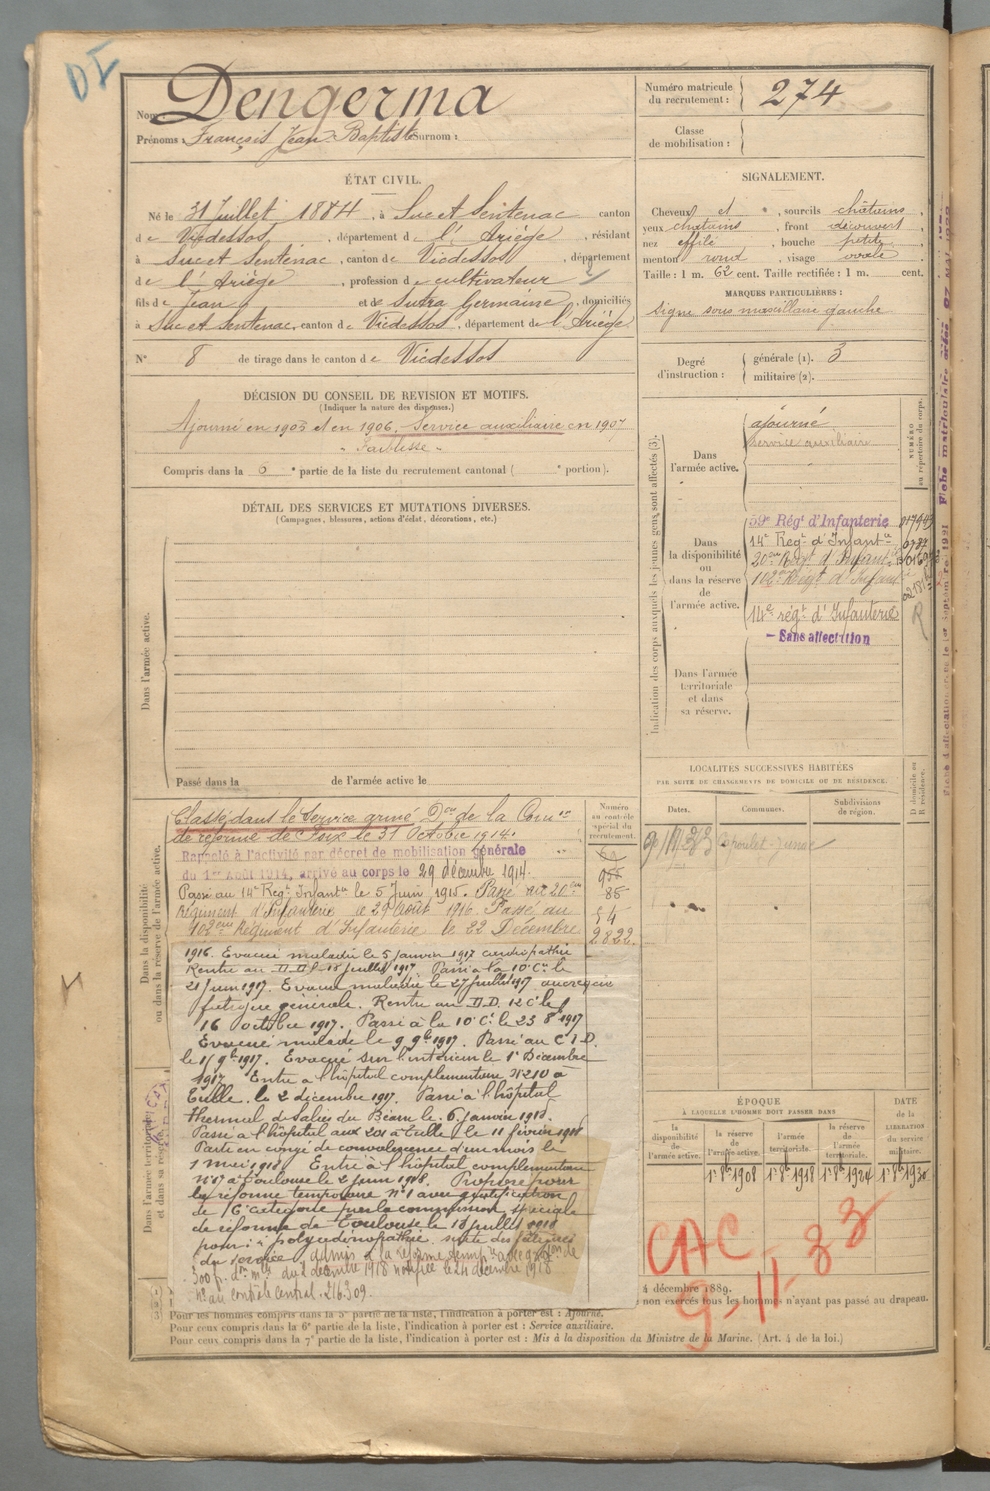 DI
Nom Dengerma
Prénoms : François Jean-Baptiste Surnom :
Numéro matricule du recrutement : 274
Classe de mobilisation :
ÉTAT CIVIL.
Né le 31 Juillet 1884, à Suc et Sentenac canton
de Vicdessos, département de l'Ariège, résidant
à Suc et Sentenac, canton de Vicdessos, département
de l'Ariège, profession de cultivateur
fils de Jean et de Sutra Germaine, domiciliés
à Suc et Sentenac, canton de Vicdessos, département de l'Ariège
N° 8 de tirage dans le canton de Vicdessos
SIGNALEMENT.
Cheveux et , sourcils châtains,
yeux châtains, front découvert,
nez effilé, bouche petite,
menton rond, visage ovale.
Taille : 1 m. 62 cent. Taille rectifiée : 1 m. cent.
MARQUES PARTICULIÈRES :
Signe sous maxillaire gauche
Degré d'instruction : générale (1). 3
militaire (2).
DÉCISION DU CONSEIL DE REVISION ET MOTIFS.
(Indiquer la nature des dispenses.)
Ajourné en 1905 et en 1906. Service auxiliaire en 1907
Faiblesse
Compris dans la 6e partie de la liste du recrutement cantonal ( e portion).
DÉTAIL DES SERVICES ET MUTATIONS DIVERSES.
(Campagnes, blessures, actions d'éclat, décorations, etc.)
Dans l'armée active.
Passé dans la de l'armée active le
Indication des corps auxquels les jeunes gens sont affectés (3).
NUMÉRO au répertoire du corps.
Dans l'armée active.
ajourné
service auxiliaire
Dans la disponibilité ou dans la réserve de l'armée active.
59e Régt d'Infanterie
14e Regt d'Infantie
20eme Regt d'Infantie
102e Regt d'Infant
14e régt d'Infanterie
- Sans affectation
R
Dans l'armée territoriale et dans sa réserve.
LOCALITÉS SUCCESSIVES HABITÉES
PAR SUITE DE CHANGEMENTS DE DOMICILE OU DE RÉSIDENCE.
Dates. Communes. Subdivisions de région. D domicile ou R résidence.
Capoulet-Junac
Dans la disponibilité ou dans la réserve de l'armée active.
Numéro au contrôle spécial du recrutement.
Classé dans le Service armé Don de la Comon
de réforme de Foix le 31 Octobre 1914.
Rappelé à l'activité par décret de mobilisation générale
du 1er Août 1914, arrivé au corps le 29 décembre 1914.
Passé au 14e Regt Infantie le 5 Juin 1915. Passé au 20eme
Régiment d'Infanterie le 29 Août 1916. Passé au
102eme Régiment d'Infanterie le 22 Décembre
85
54
2822
1916. Evacué malade le 5 Janvier 1917
Rentré au D.D. le 18 juillet 1917. Passé à la 10e Cie le
21 juin 1917. Evacué malade le 27 juillet 1917
fatigue générale. Rentré au D.D. 12 Cie le
16 octobre 1917. Passé à la 10e Cie le 23 8b 1917
Evacué malade le 9 9b 1917. Passé au C I D.
le 9b 1917. Evacué sur l'intérieur le 1r Décembre
1917. Entré à l'hôpital complémentaire N°210 à
Tulle le 2 décembre 1917. Passé à l'hôpital
thermal de Salies du Béarn le 6 janvier 1918.
Passé à l'hôpital aux 201 à Tulle le 11 février 1918
Parti en congé de convalescence d'un mois le
1 mai 1918. Entré à l'hôpital complémentaire
N°17 à Toulouse le 2 juin 1918. Proposé pour
la réforme temporaire N°1 avec gratification
de 6e catégorie par la commission spéciale
de réforme de Toulouse le 18 juillet 1918
pour : "polyadénopathie suite des fatigues
du service". admis à la réforme tempre avec gration de
300 f. don mlle du 2 décembre 1918 notifiée le 24 décembre 1918
N° au contrôle central : 216.309.
Dans l'armée territoriale et dans sa réserve.
ÉPOQUE
À LAQUELLE L'HOMME DOIT PASSER DANS
la disponibilité de l'armée active.
la réserve de l'armée active. 1r 8b 1908
l'armée territoriale. 1r 8b 1918
la réserve de l'armée territoriale. 1r 8b 1924
DATE de la LIBÉRATION du service militaire. 1r 8b 1930
CAC
9-11-33
4 décembre 1889.
non exercés tous les hommes n'ayant pas passé au drapeau.
Pour les hommes compris dans la 5e partie de la liste, l'indication à porter est : Ajourné.
Pour ceux compris dans la 6e partie de la liste, l'indication à porter est : Service auxiliaire.
Pour ceux compris dans la 7e partie de la liste, l'indication à porter est : Mis à la disposition du Ministre de la Marine. (Art. 4 de la loi.)